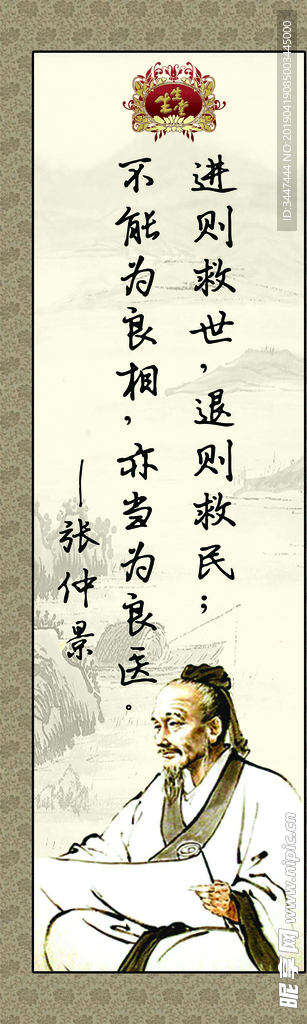 进则救世，退则救民；
不能为良相，亦当为良医。
—张仲景
生生堂
ID:3447444 NO:20190419085003445000
昵享网 www.nipic.cn